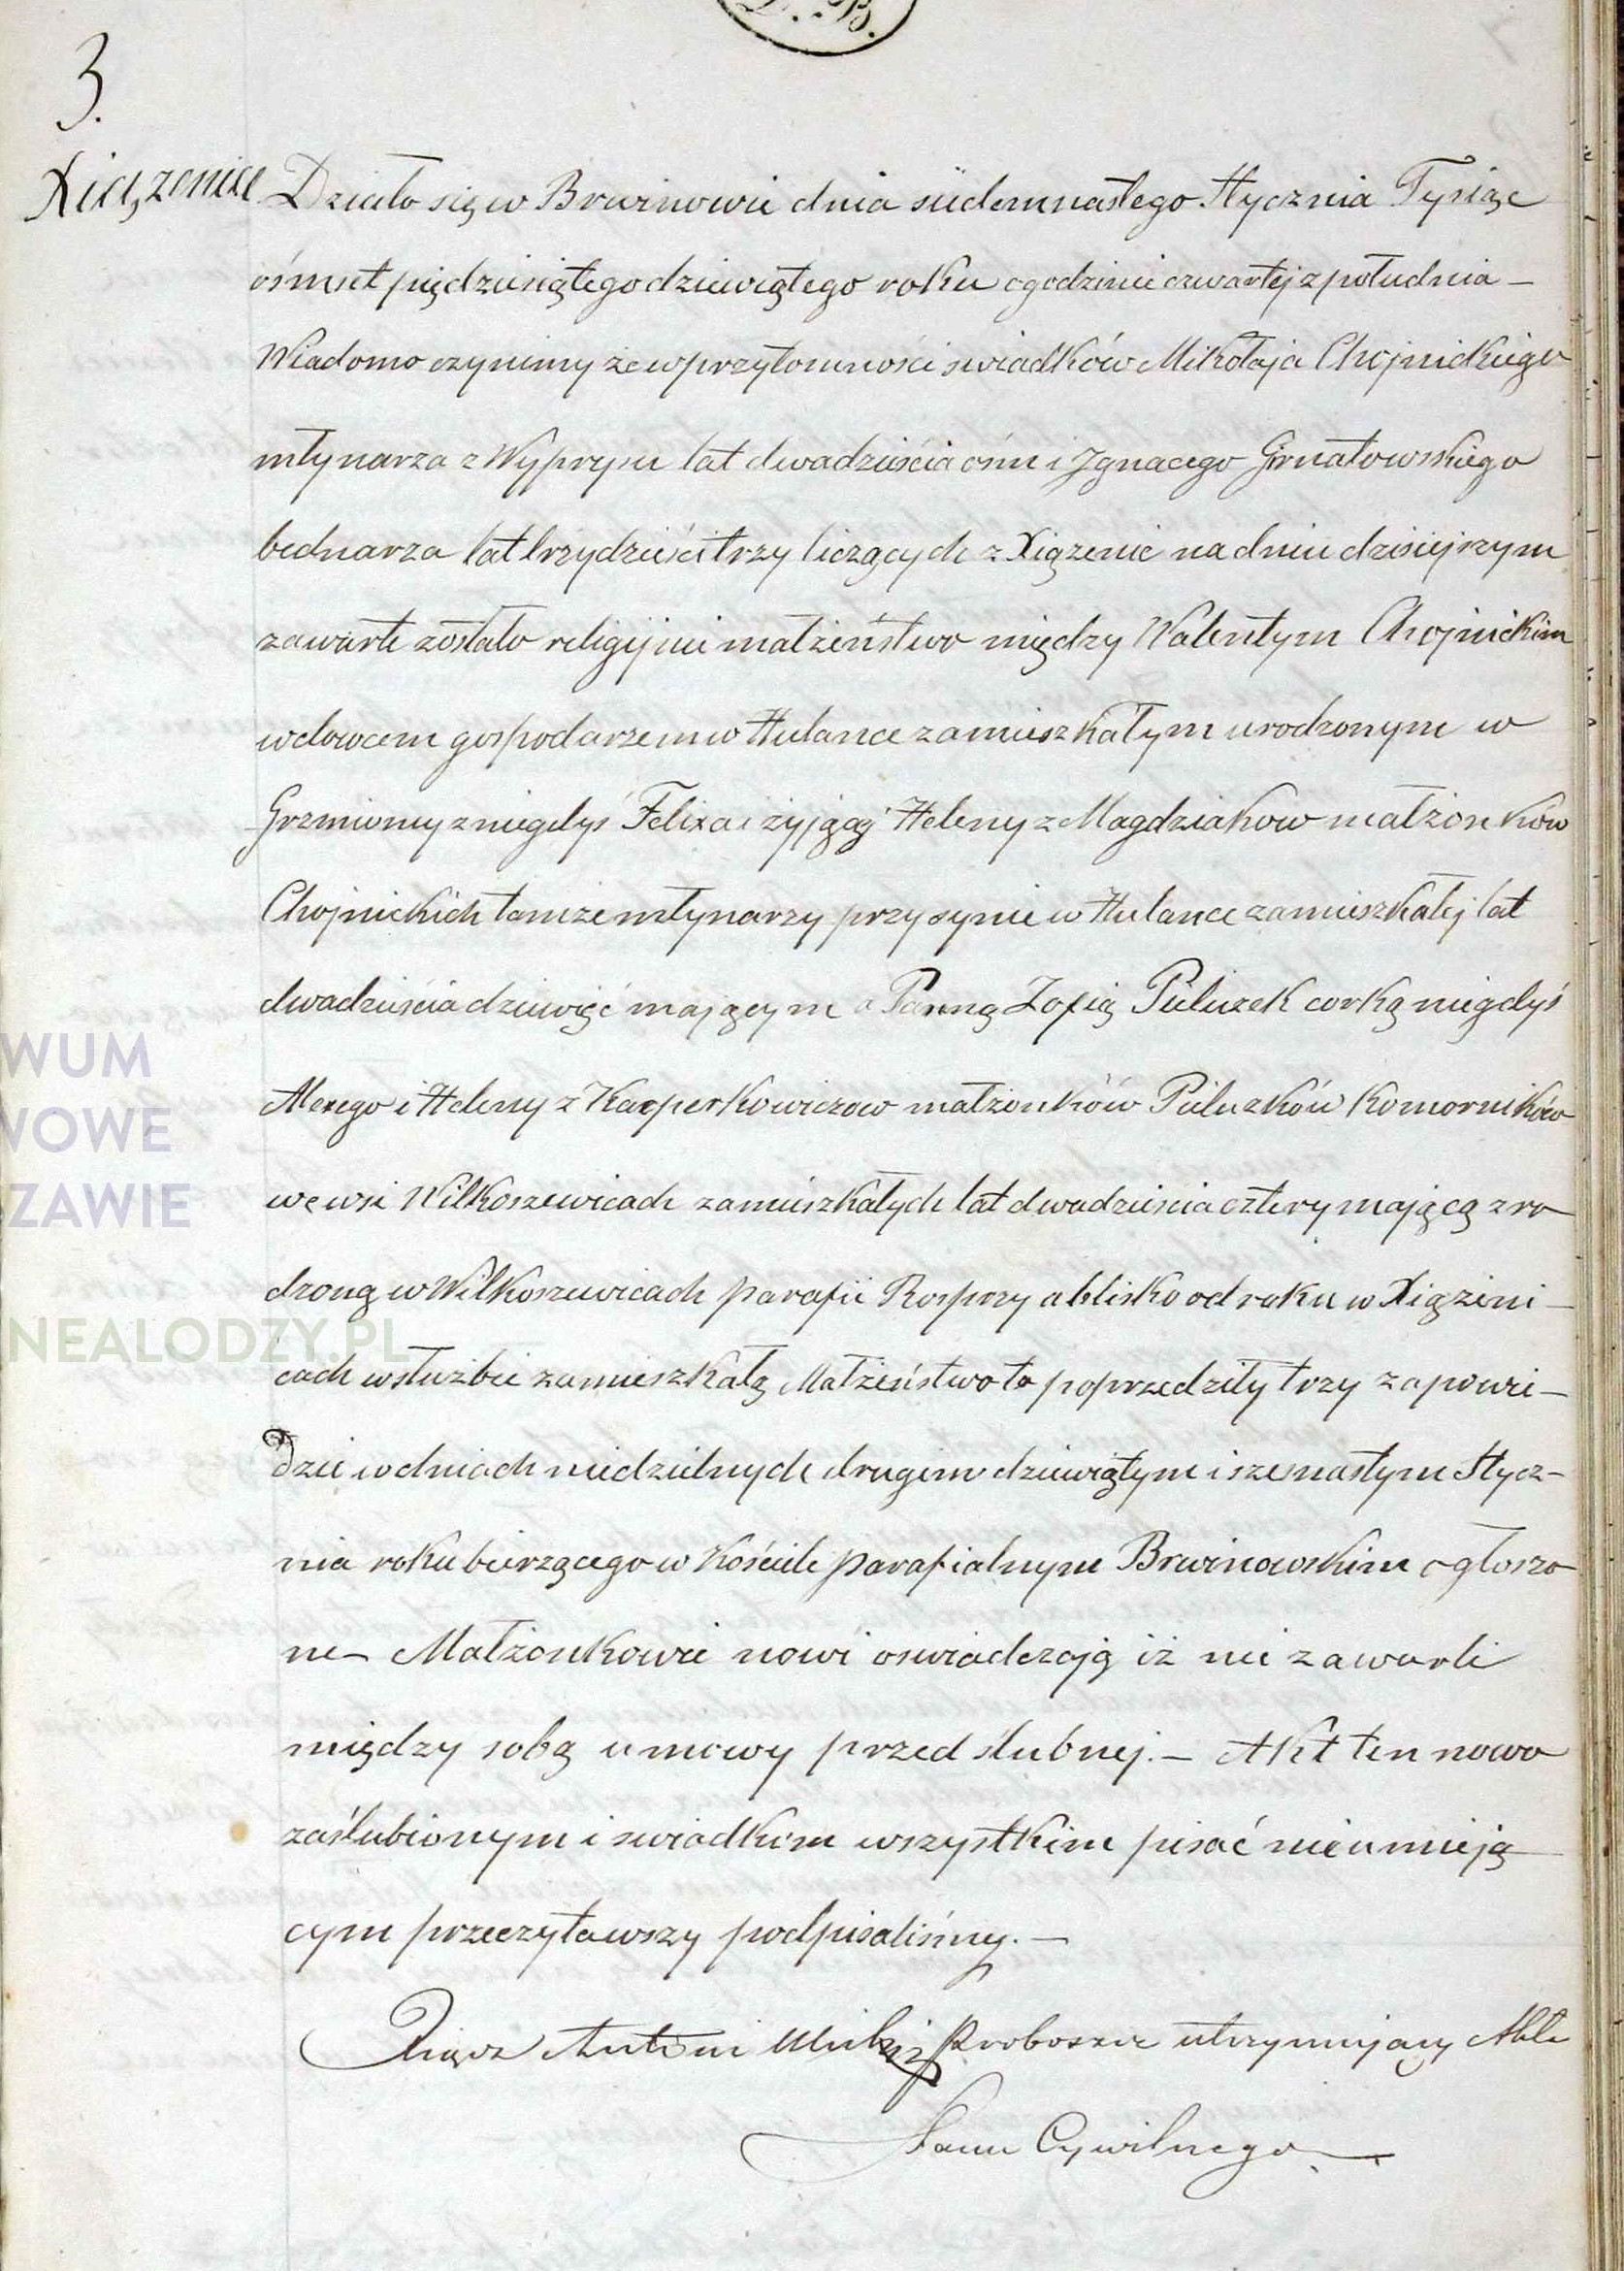 L. B.
3.
Xiążenice
Działo się w Brwinowie dnia siedemnastego Stycznia Tysiąc
ośmset piędziesiątego dziewiątego roku o godzinie czwartej z południa –
Wiadomo czynimy że w przytomności swiadków Mikołaja Chojnickiego
młynarza z Wyprysu lat dwadzieścia ośm i Ignacego Grnatowskiego
bednarza lat trzydzieści trzy liczących z Xiążenic na dniu dzisiejszym
zawarte zostało religijnie małżeństwo między Walentym Chojnickim
wdowcem gospodarzem w Hulance zamieszkałym urodzonym w
Grzmiowny z niegdyś Felixa i żyjącej Heleny z Magdziakow małżonków
Chojnickich tamże młynarzy przy synie w Hulance zamieszkałej lat
dwadzieścia dziewięć mającym a Panną Zofią Puluzek corką niegdyś
Alexego i Heleny z Kacperkowiczow małżonków Puluzków Komorników
we wsi Wilkoszewicach zamieszkałych lat dwadziescia cztery mającą zro
dzoną w Wilkoszewicach parafii Rosprzy a blisko od roku w Xiążeni –
cach w służbie zamieszkałą Małżeństwo to poprzedziły trzy zapowie –
dzie w dniach niedzielnych drugim dziewiątym i szesnastym Stycz –
nia roku bierzącego w Kościele parafialnym Brwinowskim ogłoszo
ne – Małżonkowie nowi oswiadczają iż nie zawarli
między sobą umowy przed ślubnej. – Akt ten nowo
zaślubionym i swiadkom wszystkim pisać nieumieją
cym przeczytawszy podpisaliśmy. –
Xiądz Antoni Proboszcz utrzymujący Akta
Stanu Cywilnego
WUM
WOWE
ZAWIE
NEALODZY.PL